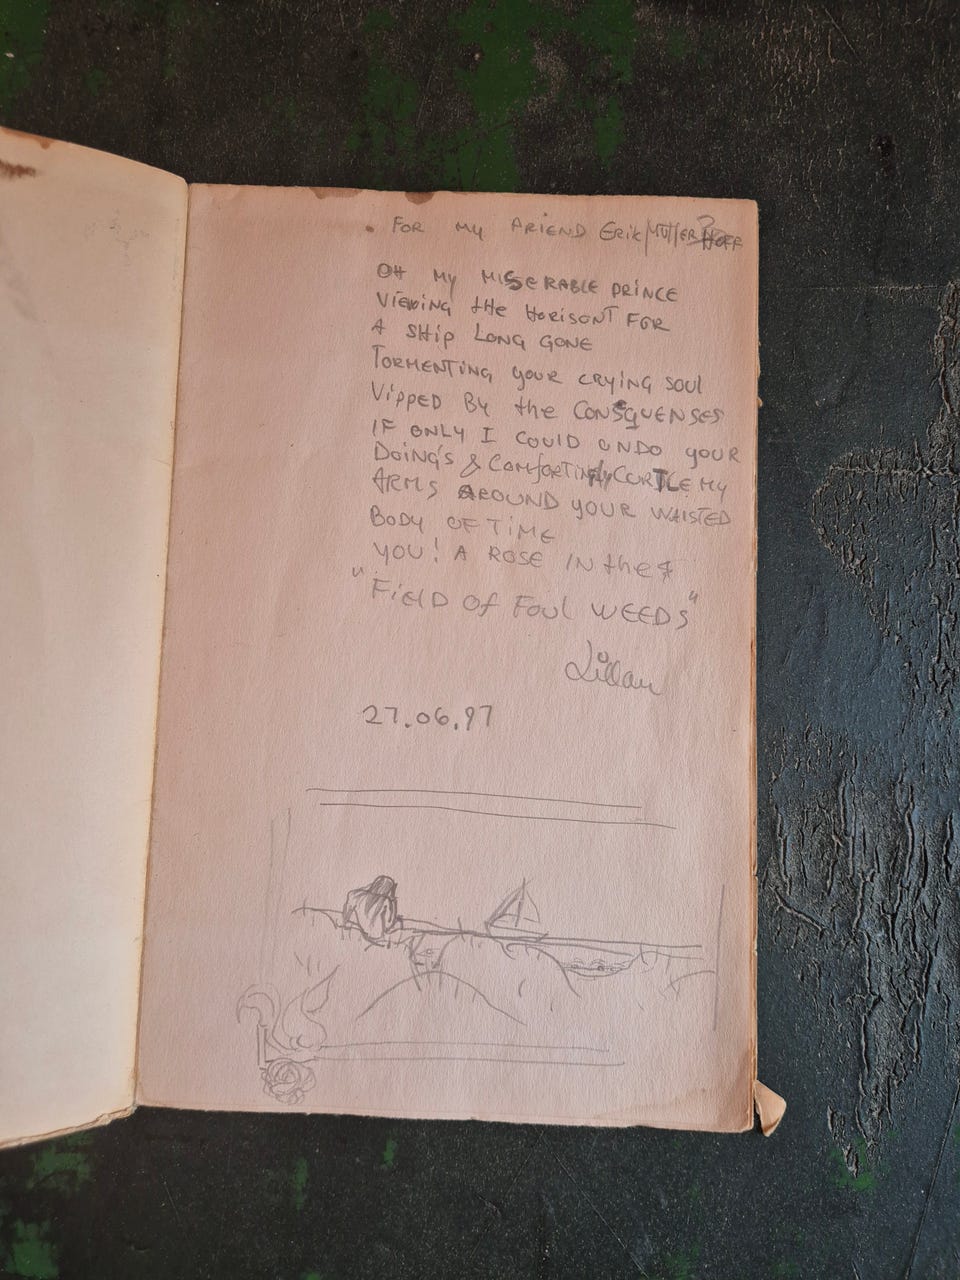 FOR MY FRIEND Erik/MÜTTER?HOFF
OH MY MISSERABLE PRINCE
VIEWING tHe HORISONT FOR
A SHip LONG GONE
TORMENTING YOUR CRYING SOUL
Vipped By the CONSGUENSES
IF ONLY I COULD UNDO YOUR
DOiNG'S & COMFORTINGLY CURTLE MY
ARMS AROUND YOUR WAISTED
BODY OF TIME
YOU! A ROSE IN the
"FiELD Of FOUL WEEDS"
Lillan
27.06.97